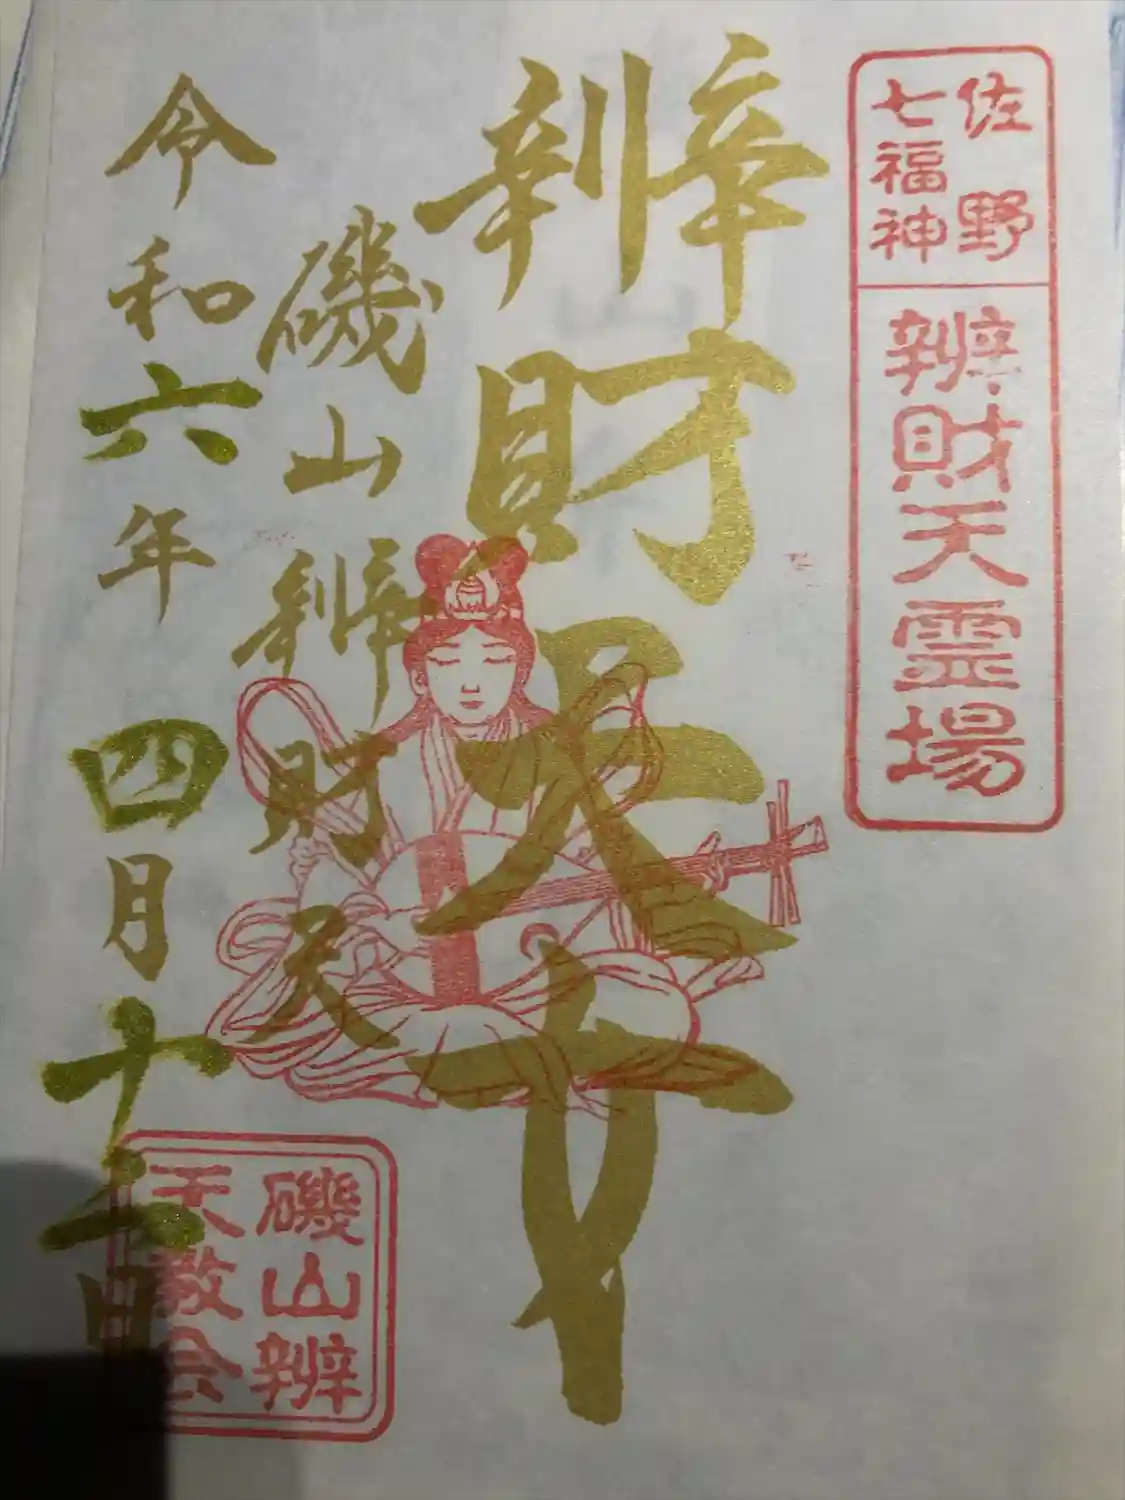 佐野
七福神
辨財天霊場
辨財天
磯山辨財天
令和六年四月十日
磯山辨
天教会